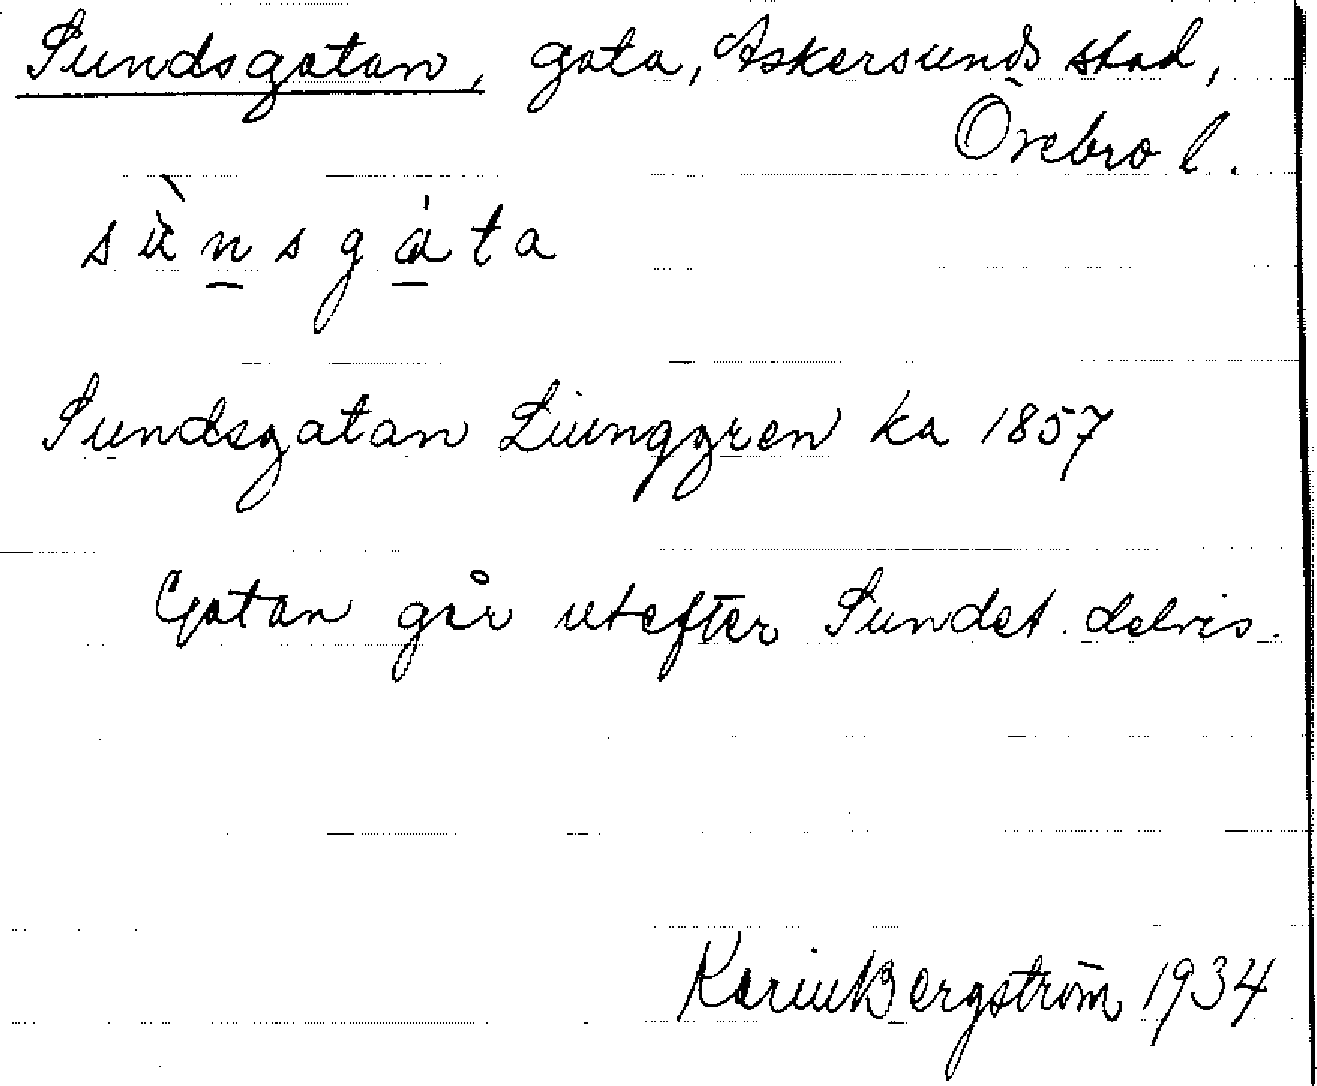 Sundsgatan, gata, Askersunds stad,
Örebro l.
sùnsgáta
Sundsgatan Liunggren ka 1857
Gatan går utefter Sundet delvis.
Karin Bergström 1934